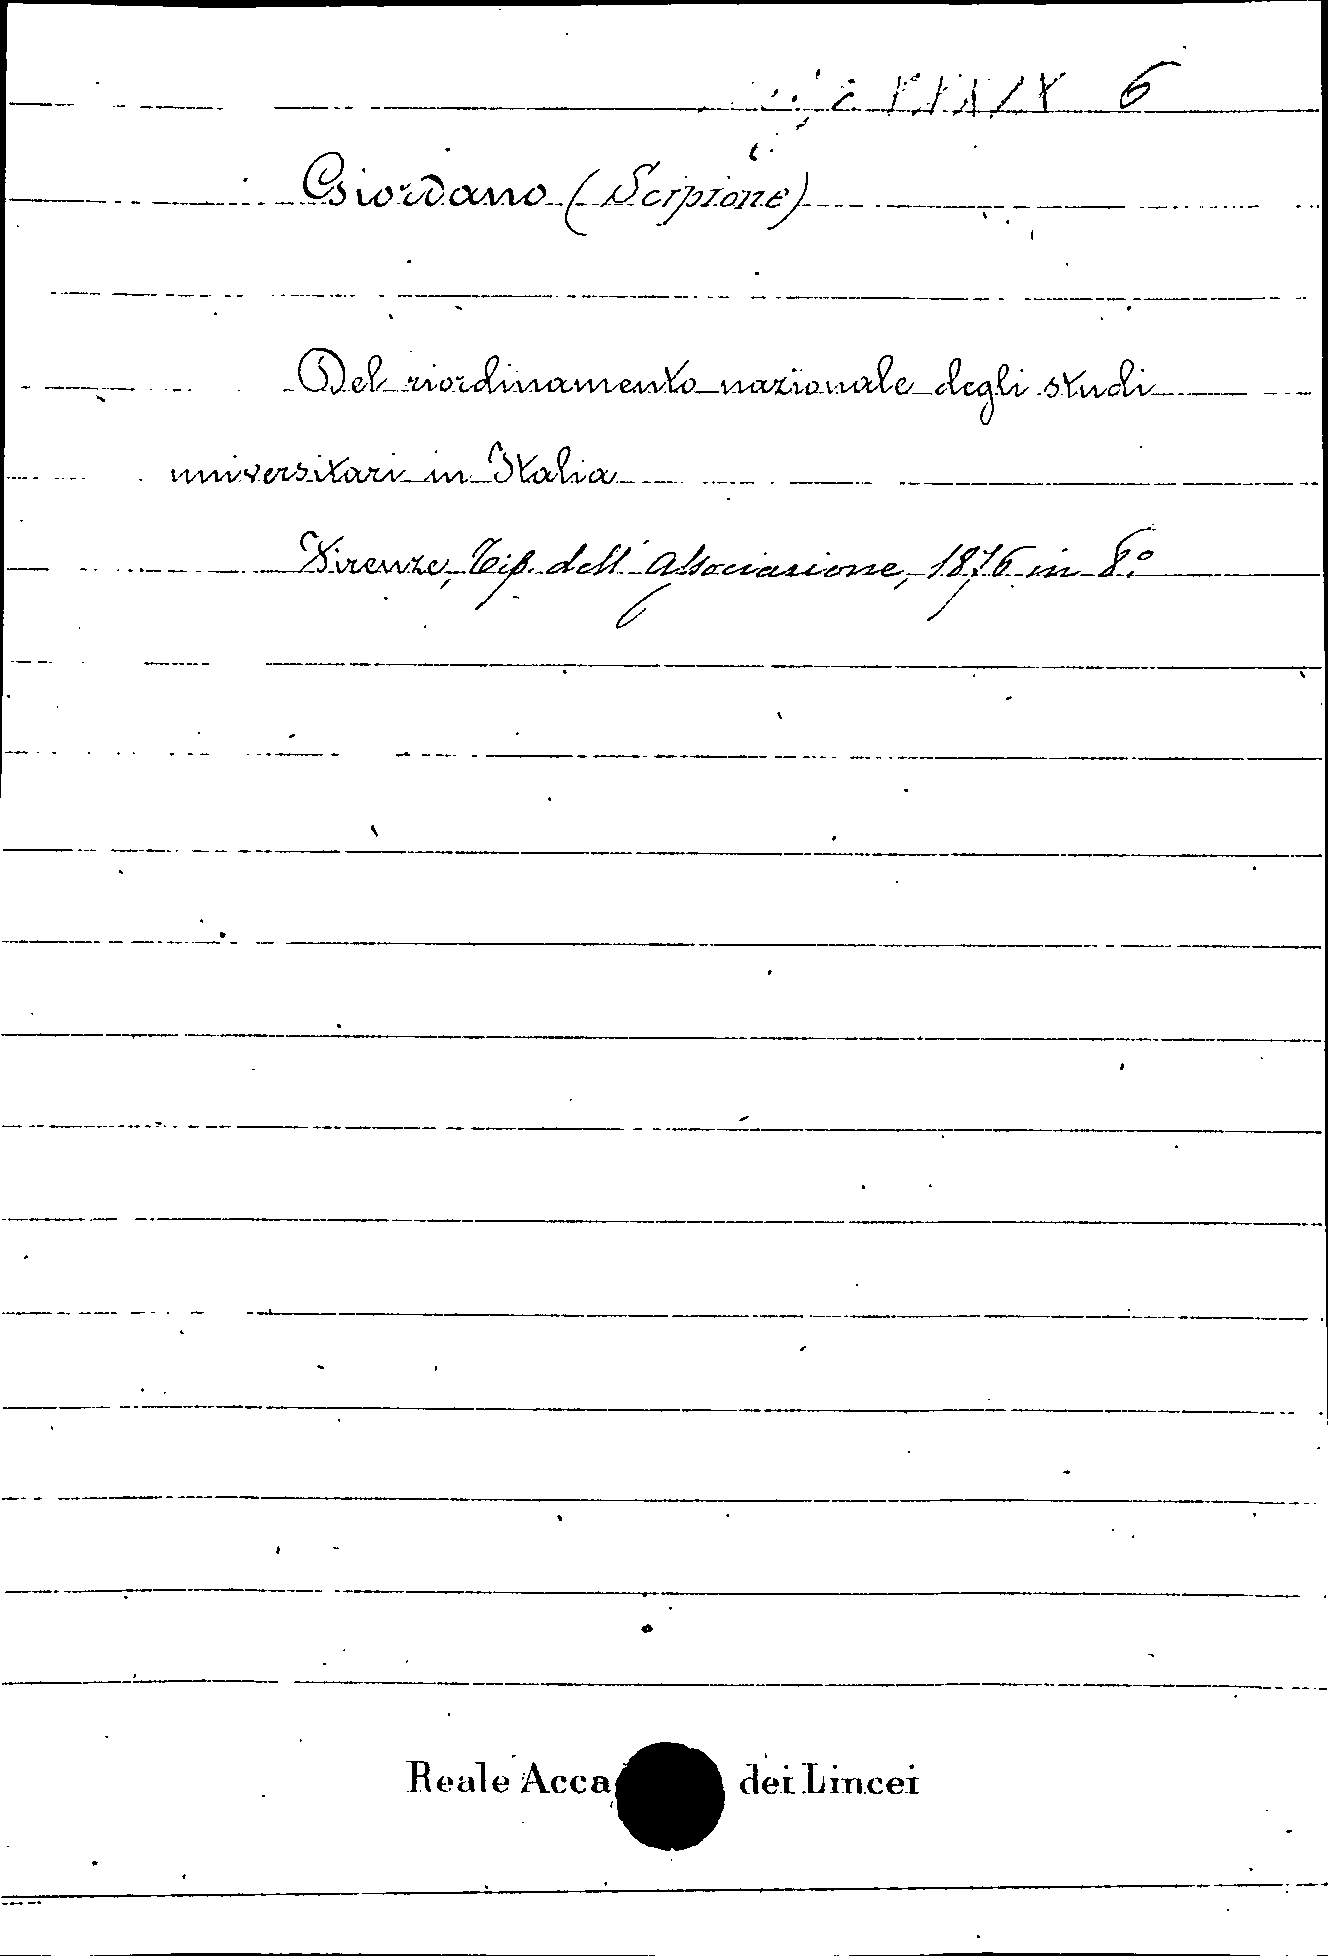 6
Giordano (Scipione)
Del riordinamento nazionale degli studi
universitari in Italia
Firenze, Tip. dell'Associazione, 1876 in 8.º
Reale Acca dei Lincei